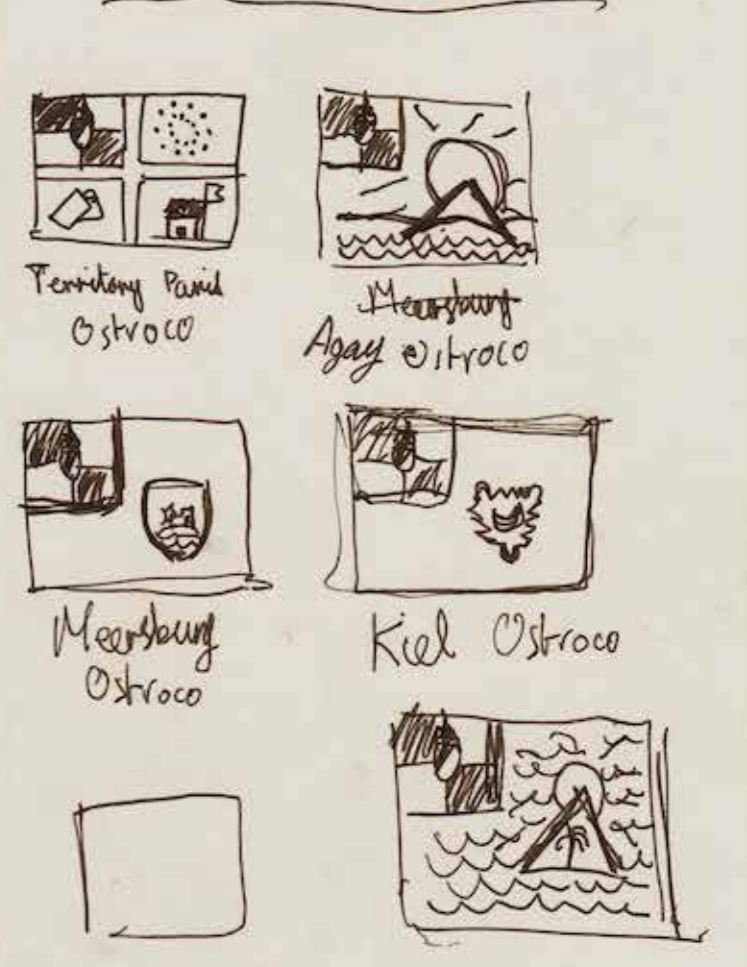 Territory Paris
Ostroco
Meersburg
Agay Ostroco
Meersburg
Ostroco
Kiel Ostroco